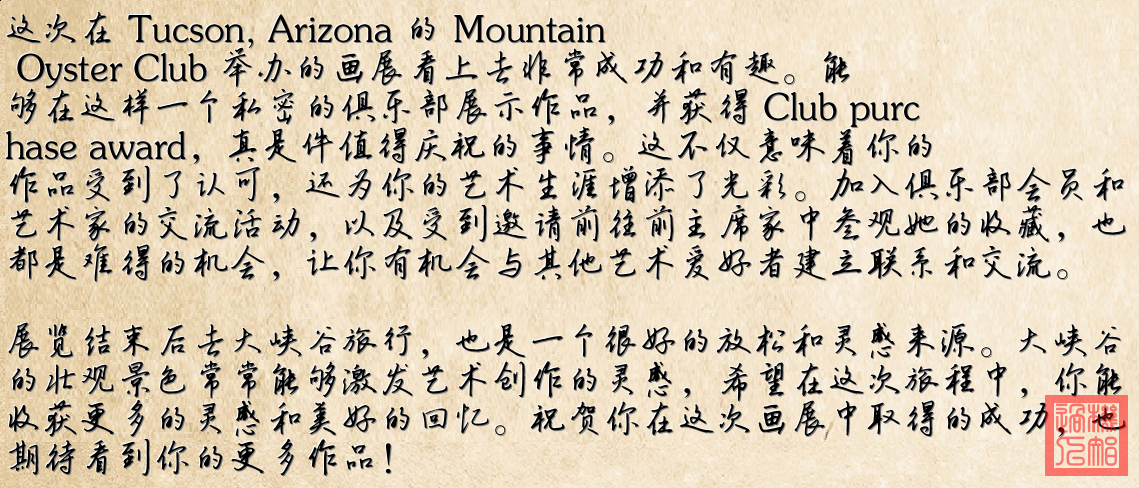 这次在 Tucson, Arizona 的 Mountain
Oyster Club 举办的画展看上去非常成功和有趣。能
够在这样一个私密的俱乐部展示作品，并获得 Club purc
hase award，真是件值得庆祝的事情。这不仅意味着你的
作品受到了认可，还为你的艺术生涯增添了光彩。加入俱乐部会员和
艺术家的交流活动，以及受到邀请前往前主席家中参观她的收藏，也
都是难得的机会，让你有机会与其他艺术爱好者建立联系和交流。
展览结束后去大峡谷旅行，也是一个很好的放松和灵感来源。大峡谷
的壮观景色常常能够激发艺术创作的灵感，希望在这次旅程中，你能
收获更多的灵感和美好的回忆。祝贺你在这次画展中取得的成功，也
期待看到你的更多作品！